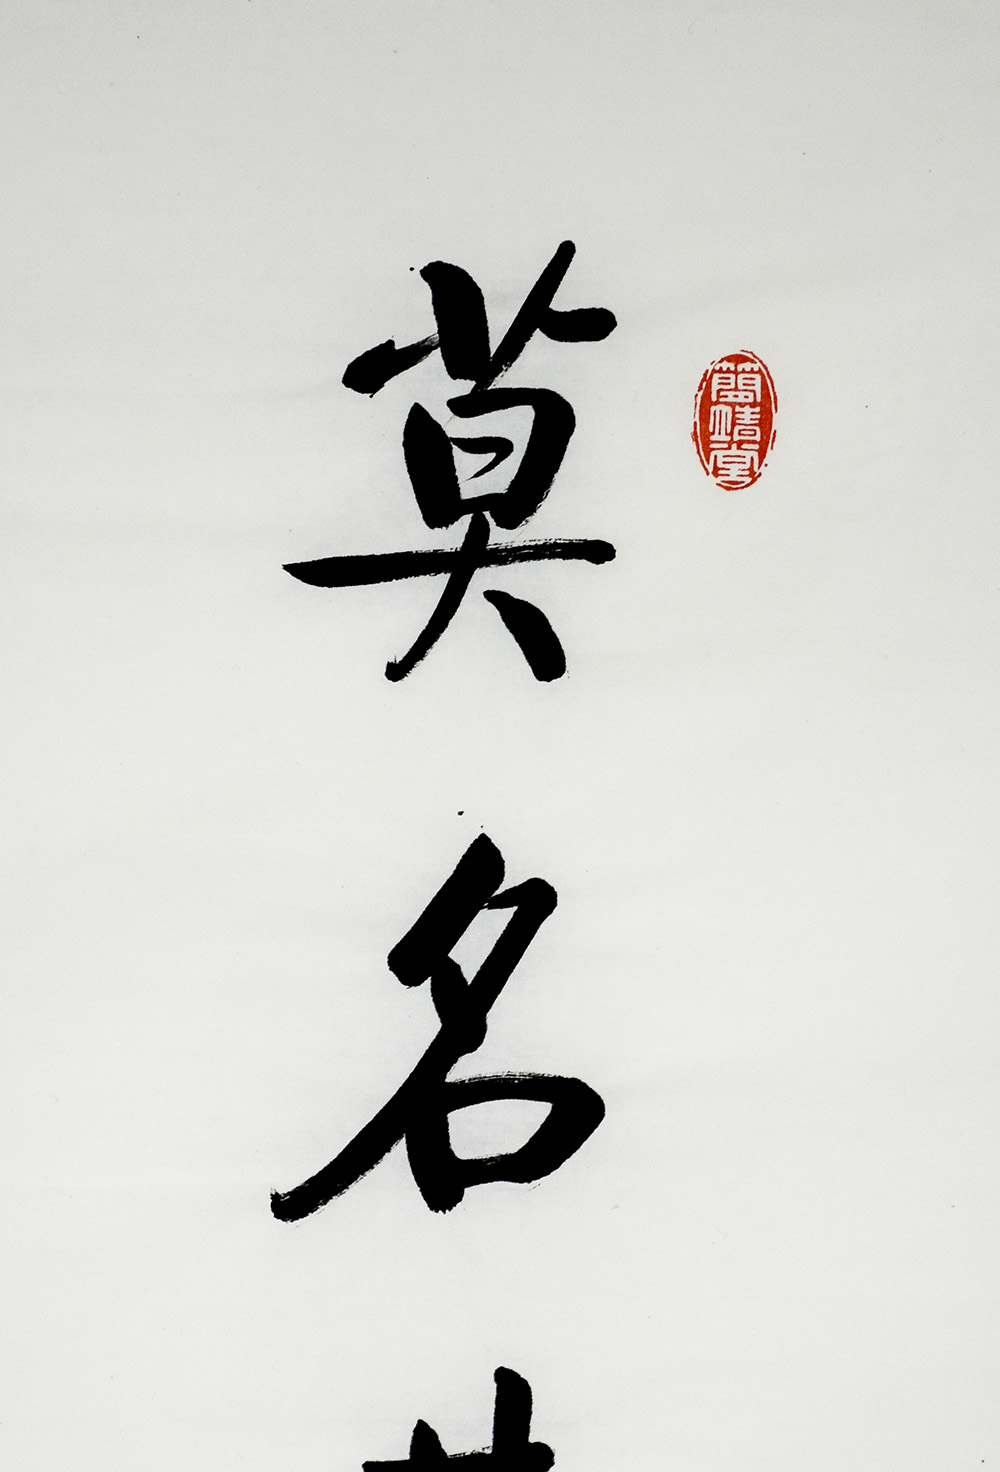 莫名
簡靖堂